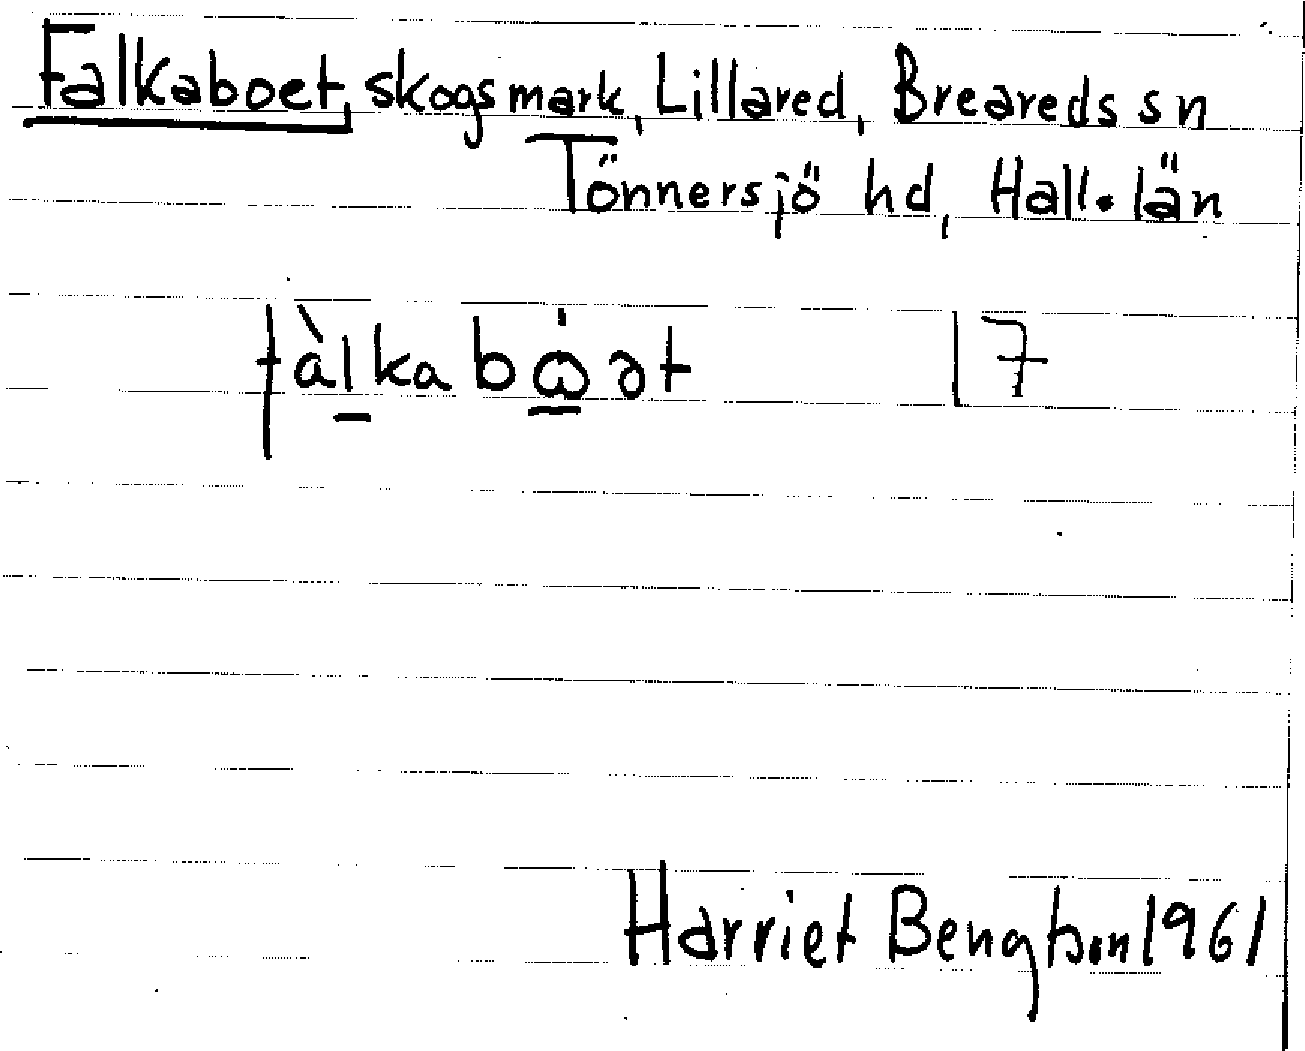 Falkaboet, skogsmark, Lillared, Breareds sn
Tönnersjö hd, Hall. län
fàlkabω̇ət 17
Harriet Bengtson 1961